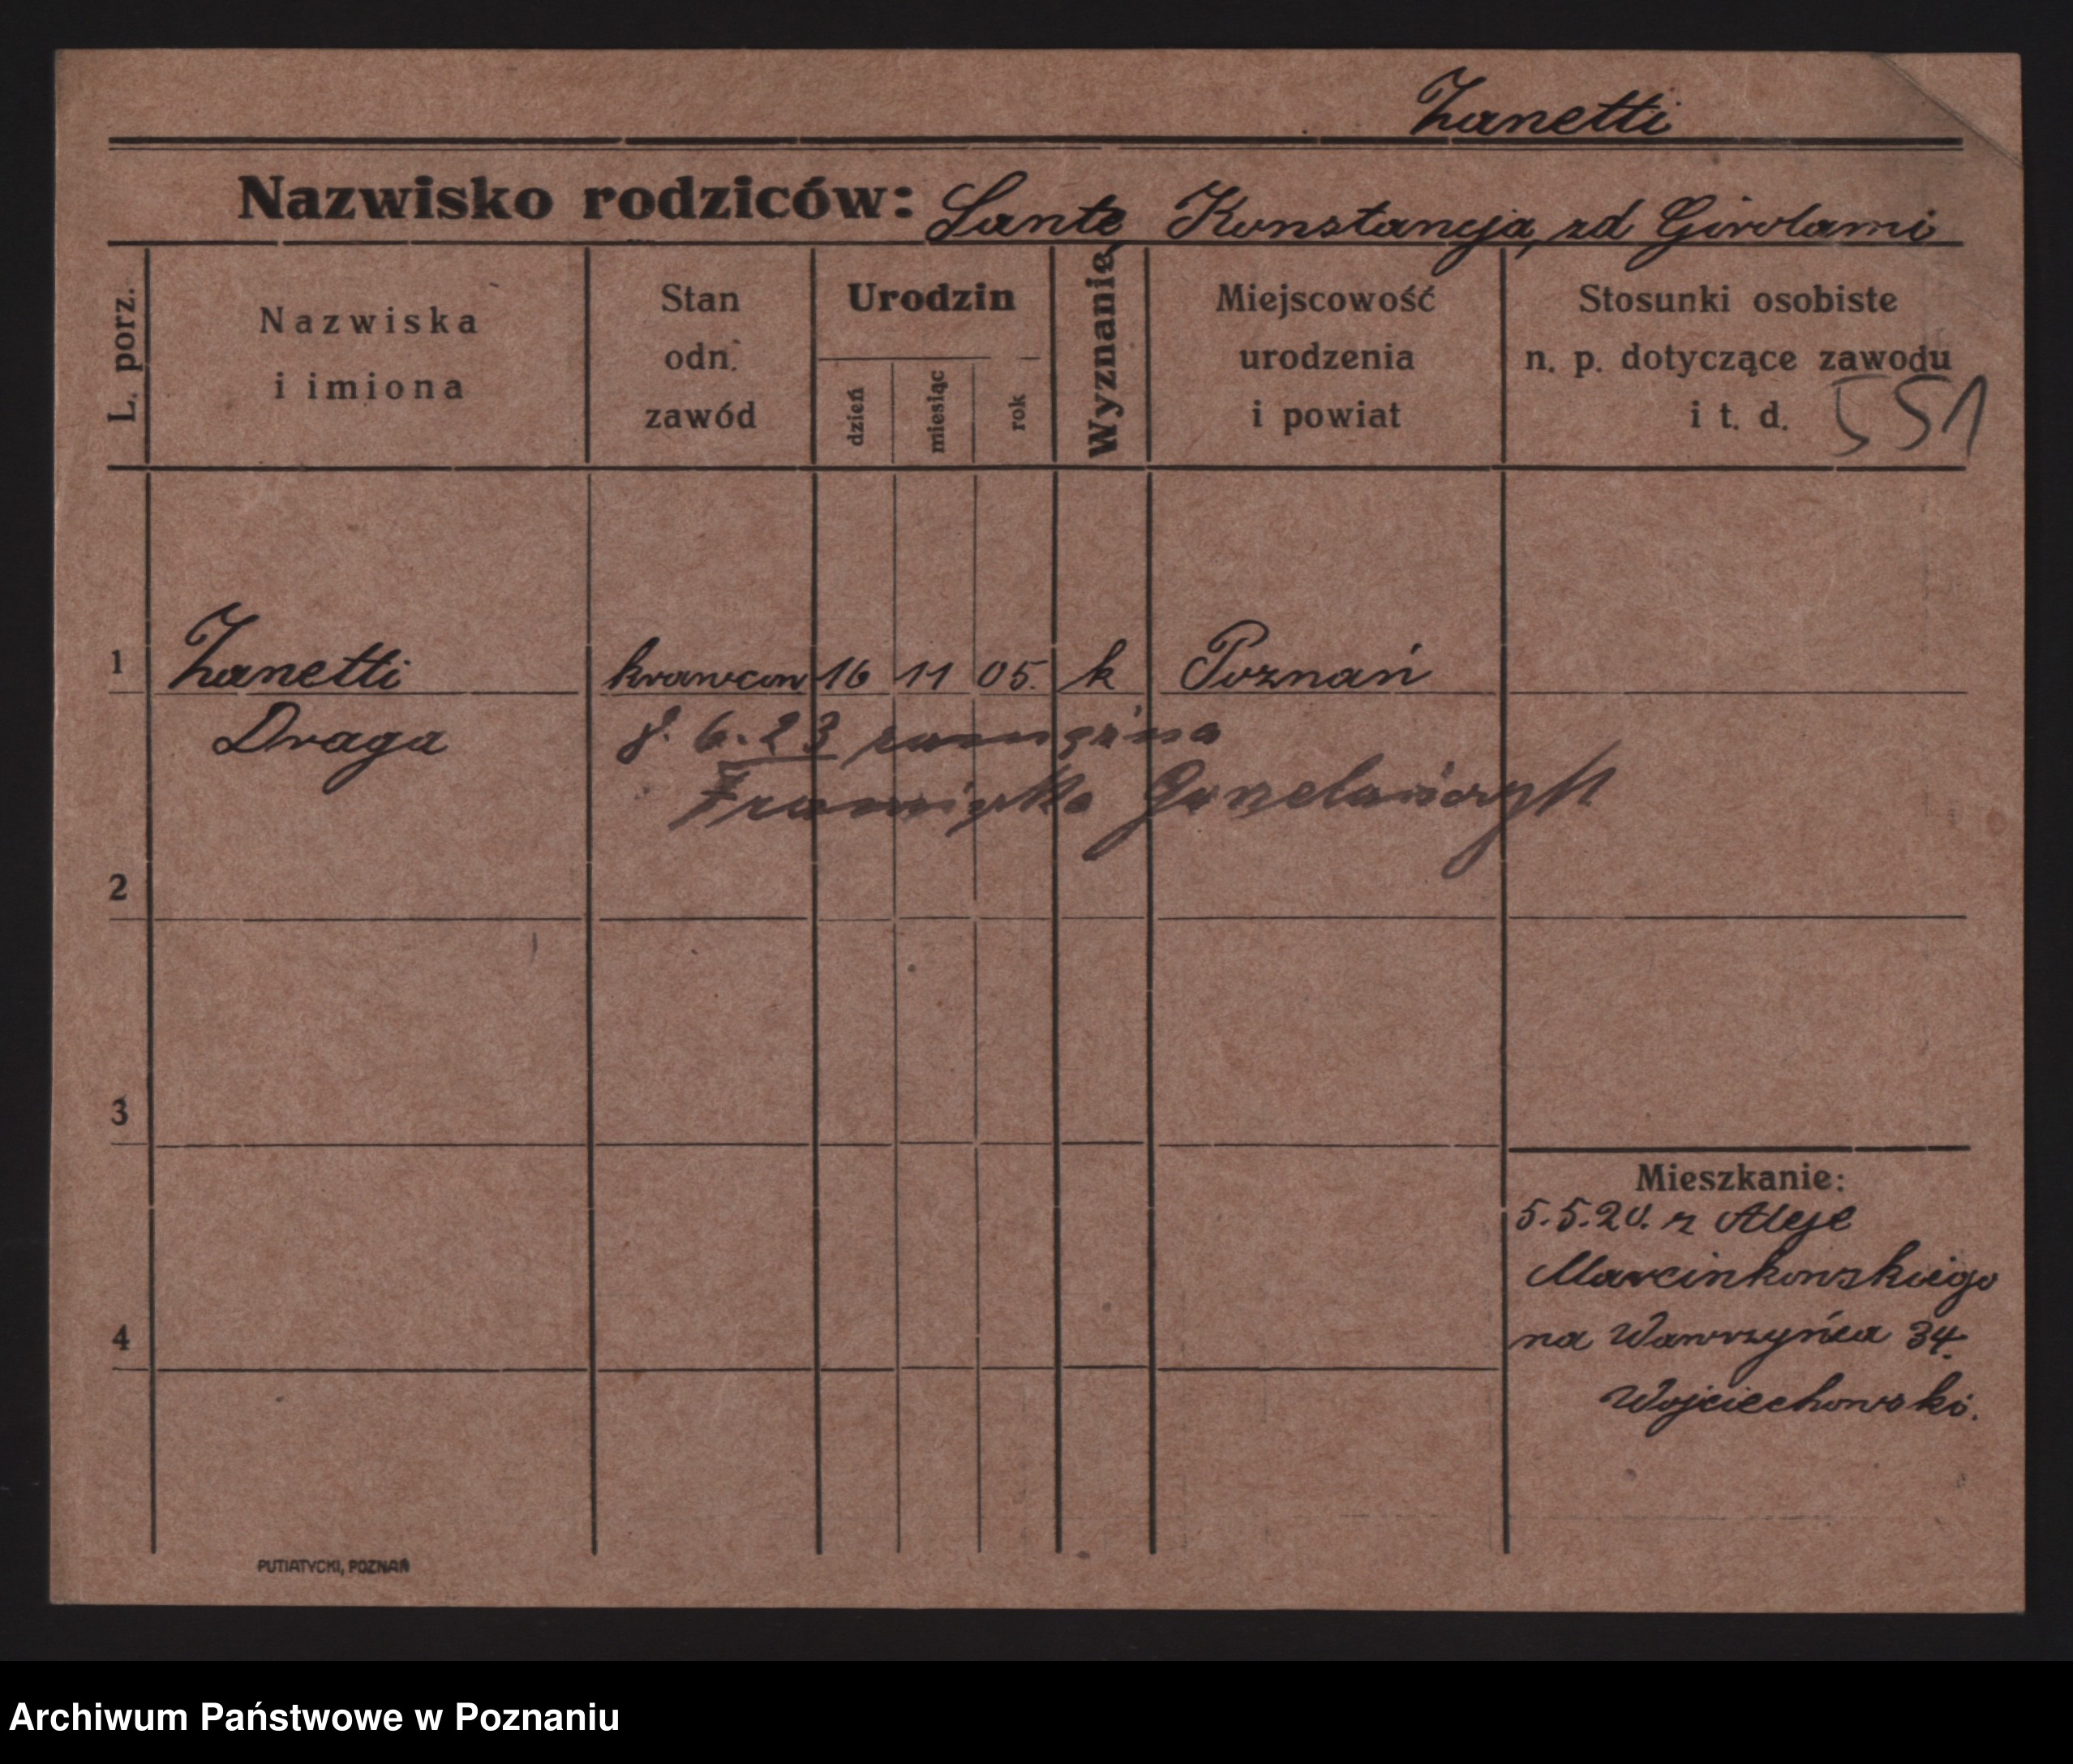 Zanetti
Nazwisko rodziców: Sante Konstancja, zd Girolami
L. porz.
Nazwiska
i imiona
Stan
odn.
zawód
Urodzin
dzień
miesiąc
rok
Wyznanie
Miejscowość
urodzenia
i powiat
Stosunki osobiste
n. p. dotyczące zawodu
i t. d.
551
1 Zanetti krawcow 16 11 05. k Poznań
Draga 8. 6. 23 zamężna
2
3
4
Mieszkanie:
5.5.20. z Aleje
Marcinkowskiego
na Wawrzyńca 34.
Wojciechowski.
PUTIATYCKI, POZNAŃ
Archiwum Państwowe w Poznaniu